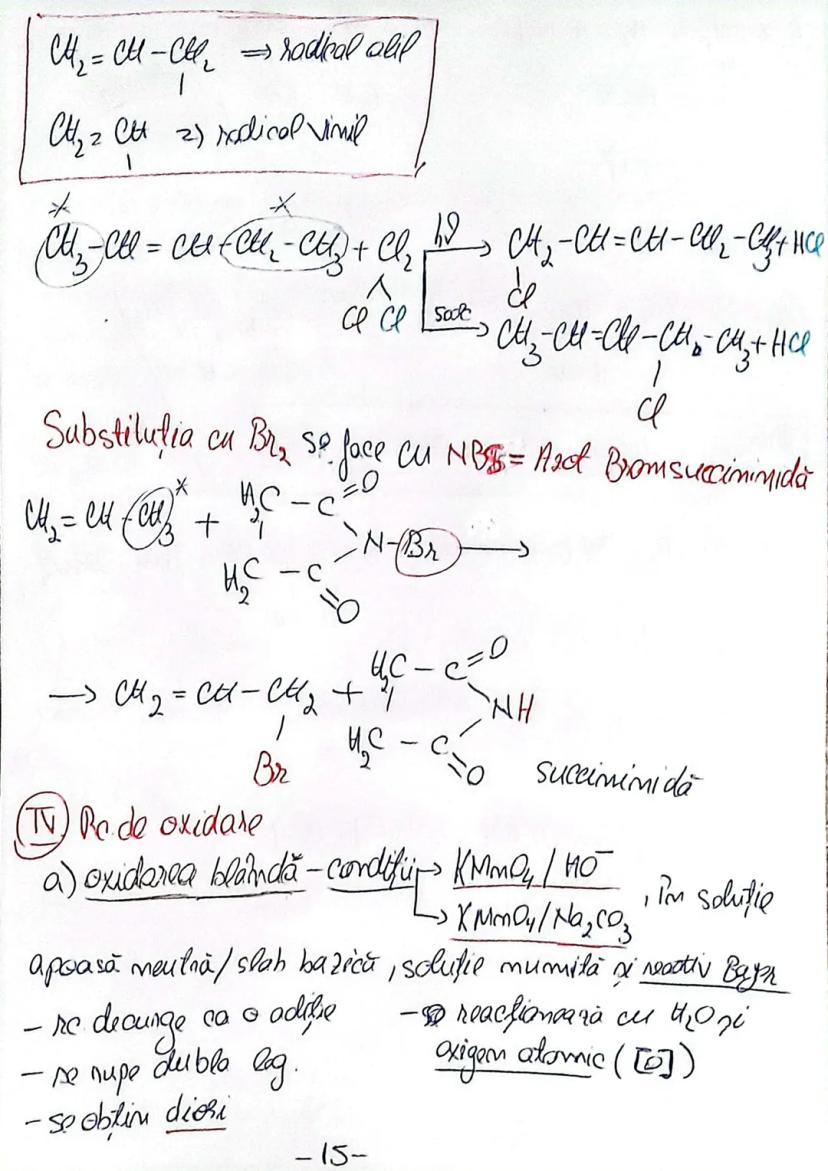 CH2 = CH – CH2 ⇒ radical alil
|
CH2 = CH ⇒ radical vinil
|
* *
CH3–CH = CH–CH2–CH3 + Cl2 hν → CH2 –CH=CH– CH2 –CH3 + HCl
Cl Cl
|
Cl
500°C → CH3–CH=CH–CH2–CH3 + HCl
|
Cl
Substituția cu Br2 se face cu NBS = Azot Bromsuccinimidă
CH2 = CH – CH3* + H2C – C=O
N–Br →
H2C – C
=O
→ CH2 = CH – CH2 + H2C – C=O
| NH
Br H2C – C=O succinimidă
IV Rc. de oxidare
a) oxidarea blândă – condiții → KMnO4 / HO–
→ KMnO4/Na2CO3 , în soluție
apoasă neutră/slab bazică, soluție numită și reactiv Bayer
– rc decurge ca o adiție
– se rupe dubla leg.
– se obțin dioli
– reacționează cu H2O și
oxigen atomic ([O])
–15–